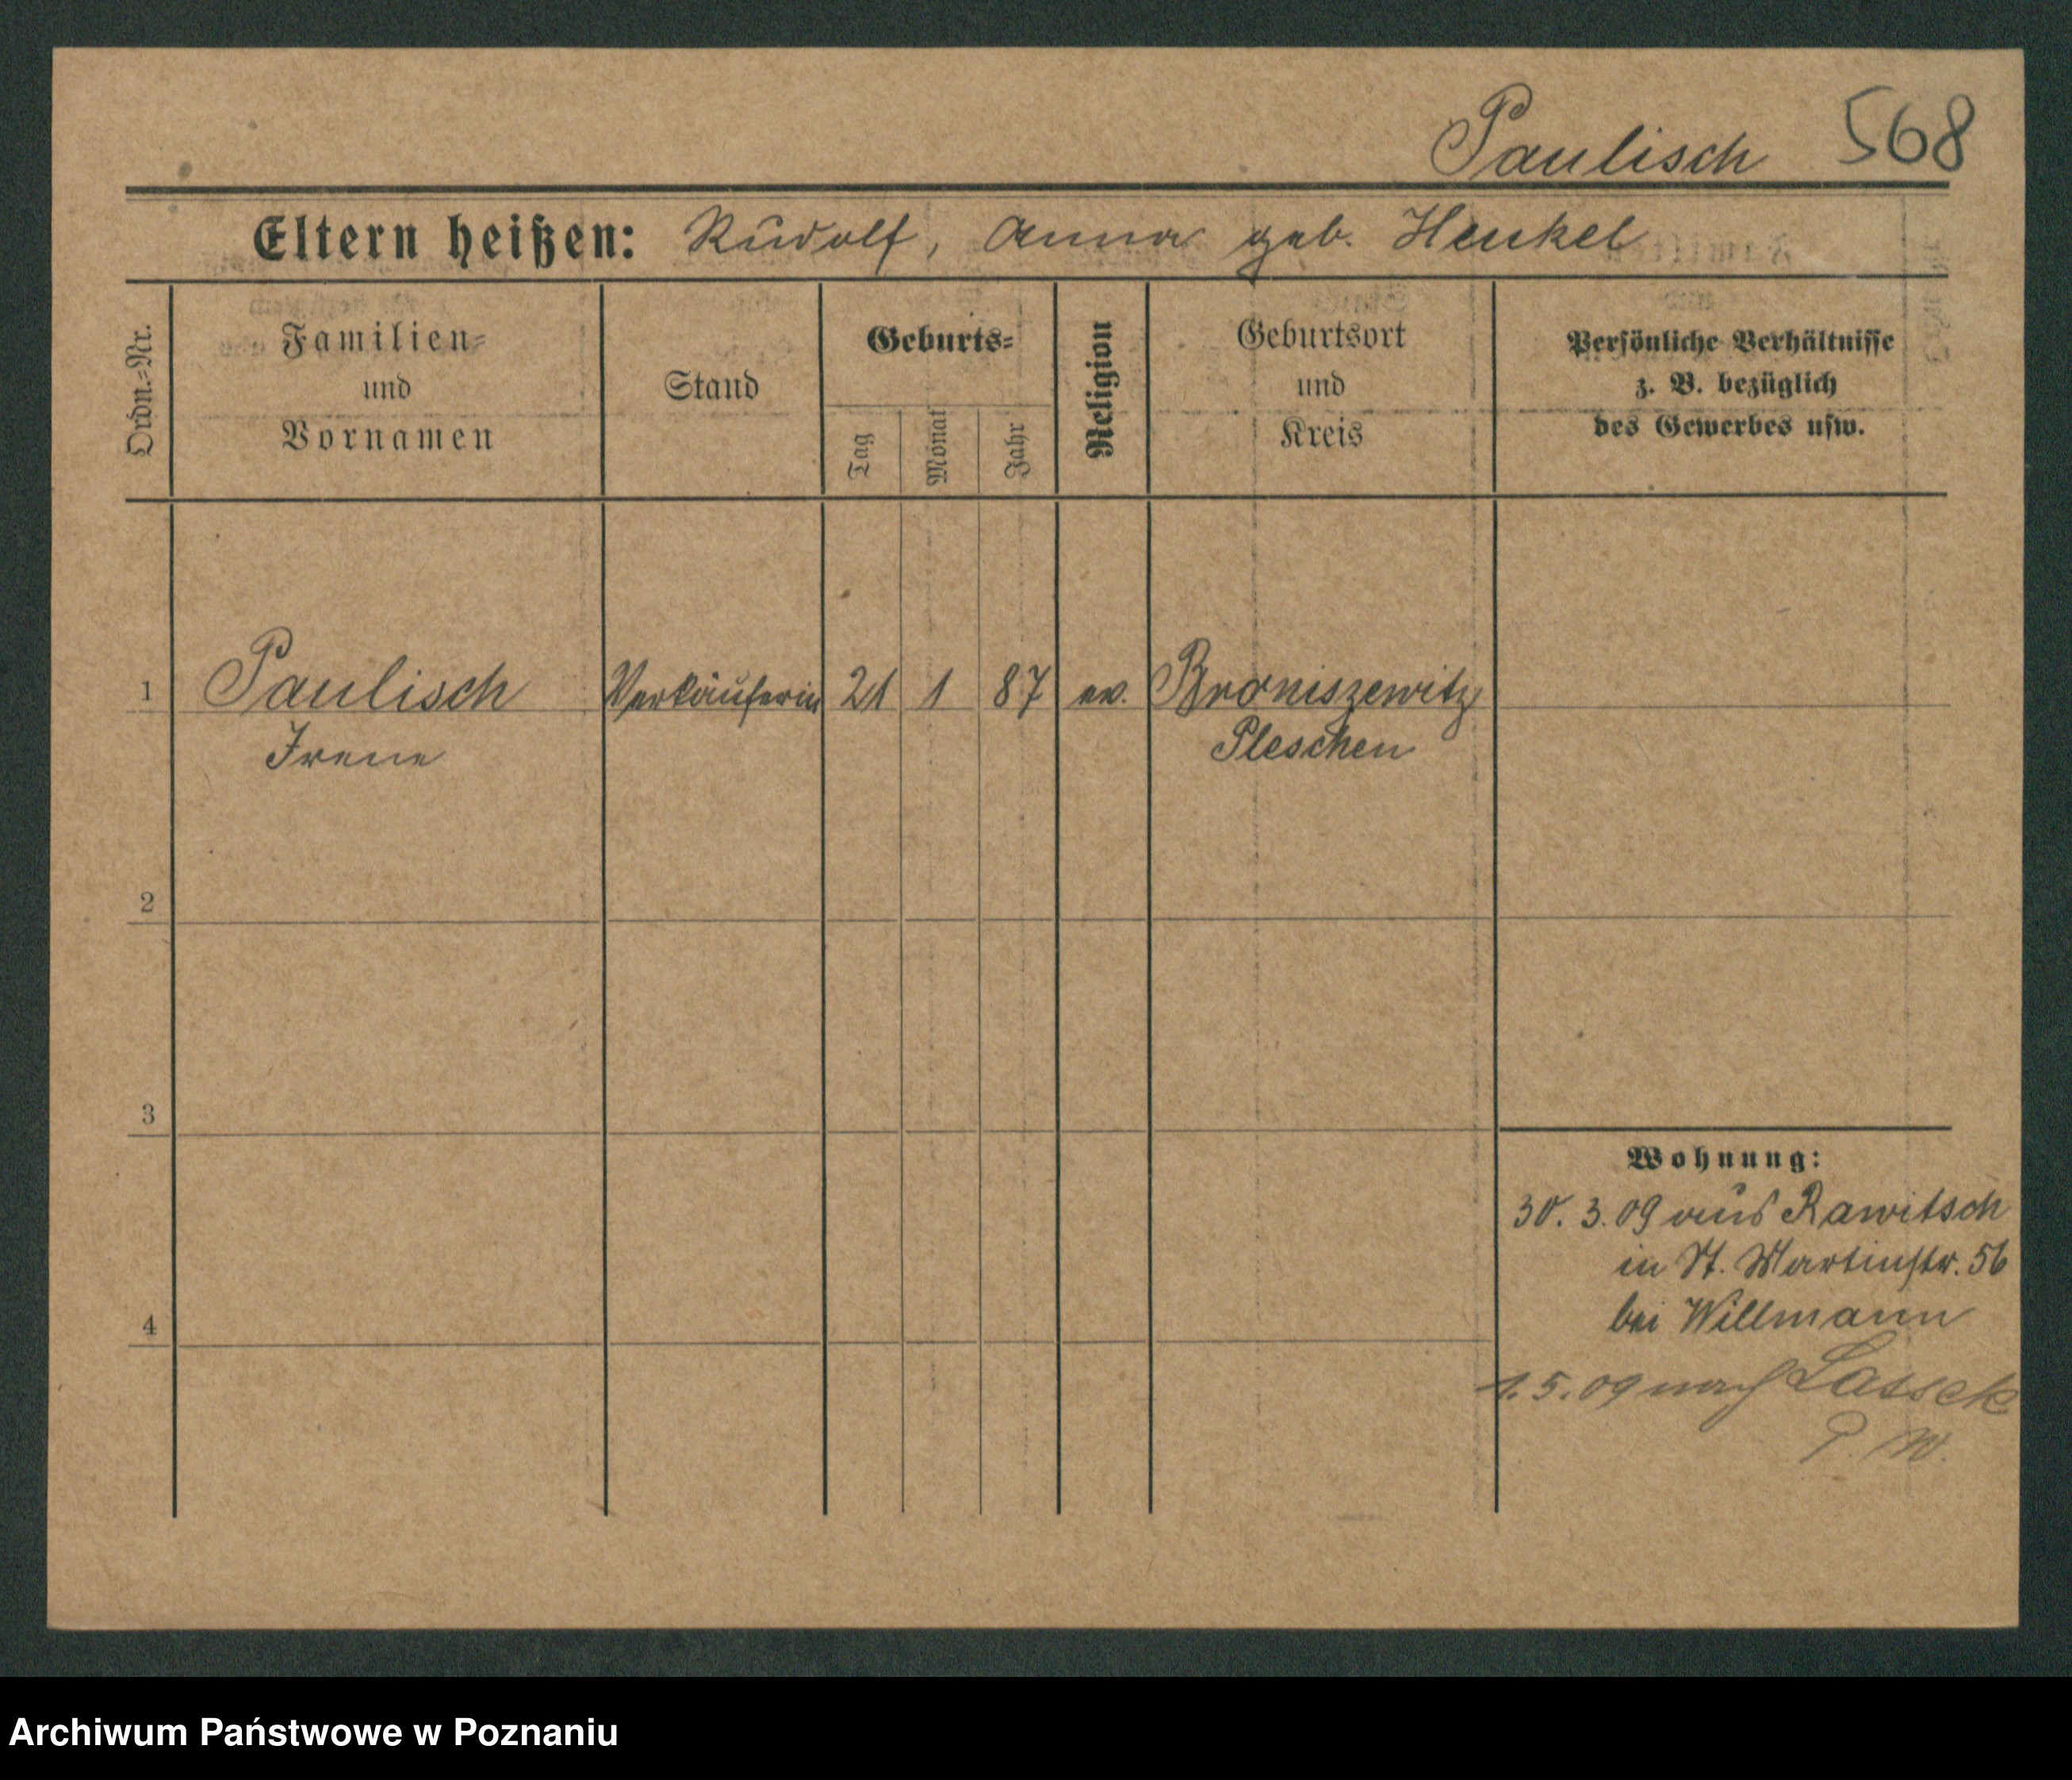 Paulisch 568
Eltern heißen: Rudolf, Anna geb. Henkel
Ordn.=Nr.
Familien=
und
Vornamen
Stand
Geburts=
Tag
Monat
Jahr
Religion
Geburtsort
und
Kreis
Persönliche Verhältnisse
z. B. bezüglich
des Gewerbes usw.
1 Paulisch Verkäuferin 21 1 87 ev. Broniszewitz
Irene Pleschen
2
3
4
Wohnung:
30. 3. 09 aus Rawitsch
in St. Martinstr. 56
bei Willmann
1. 5. 09 nach Lassek
P. W.
Archiwum Państwowe w Poznaniu